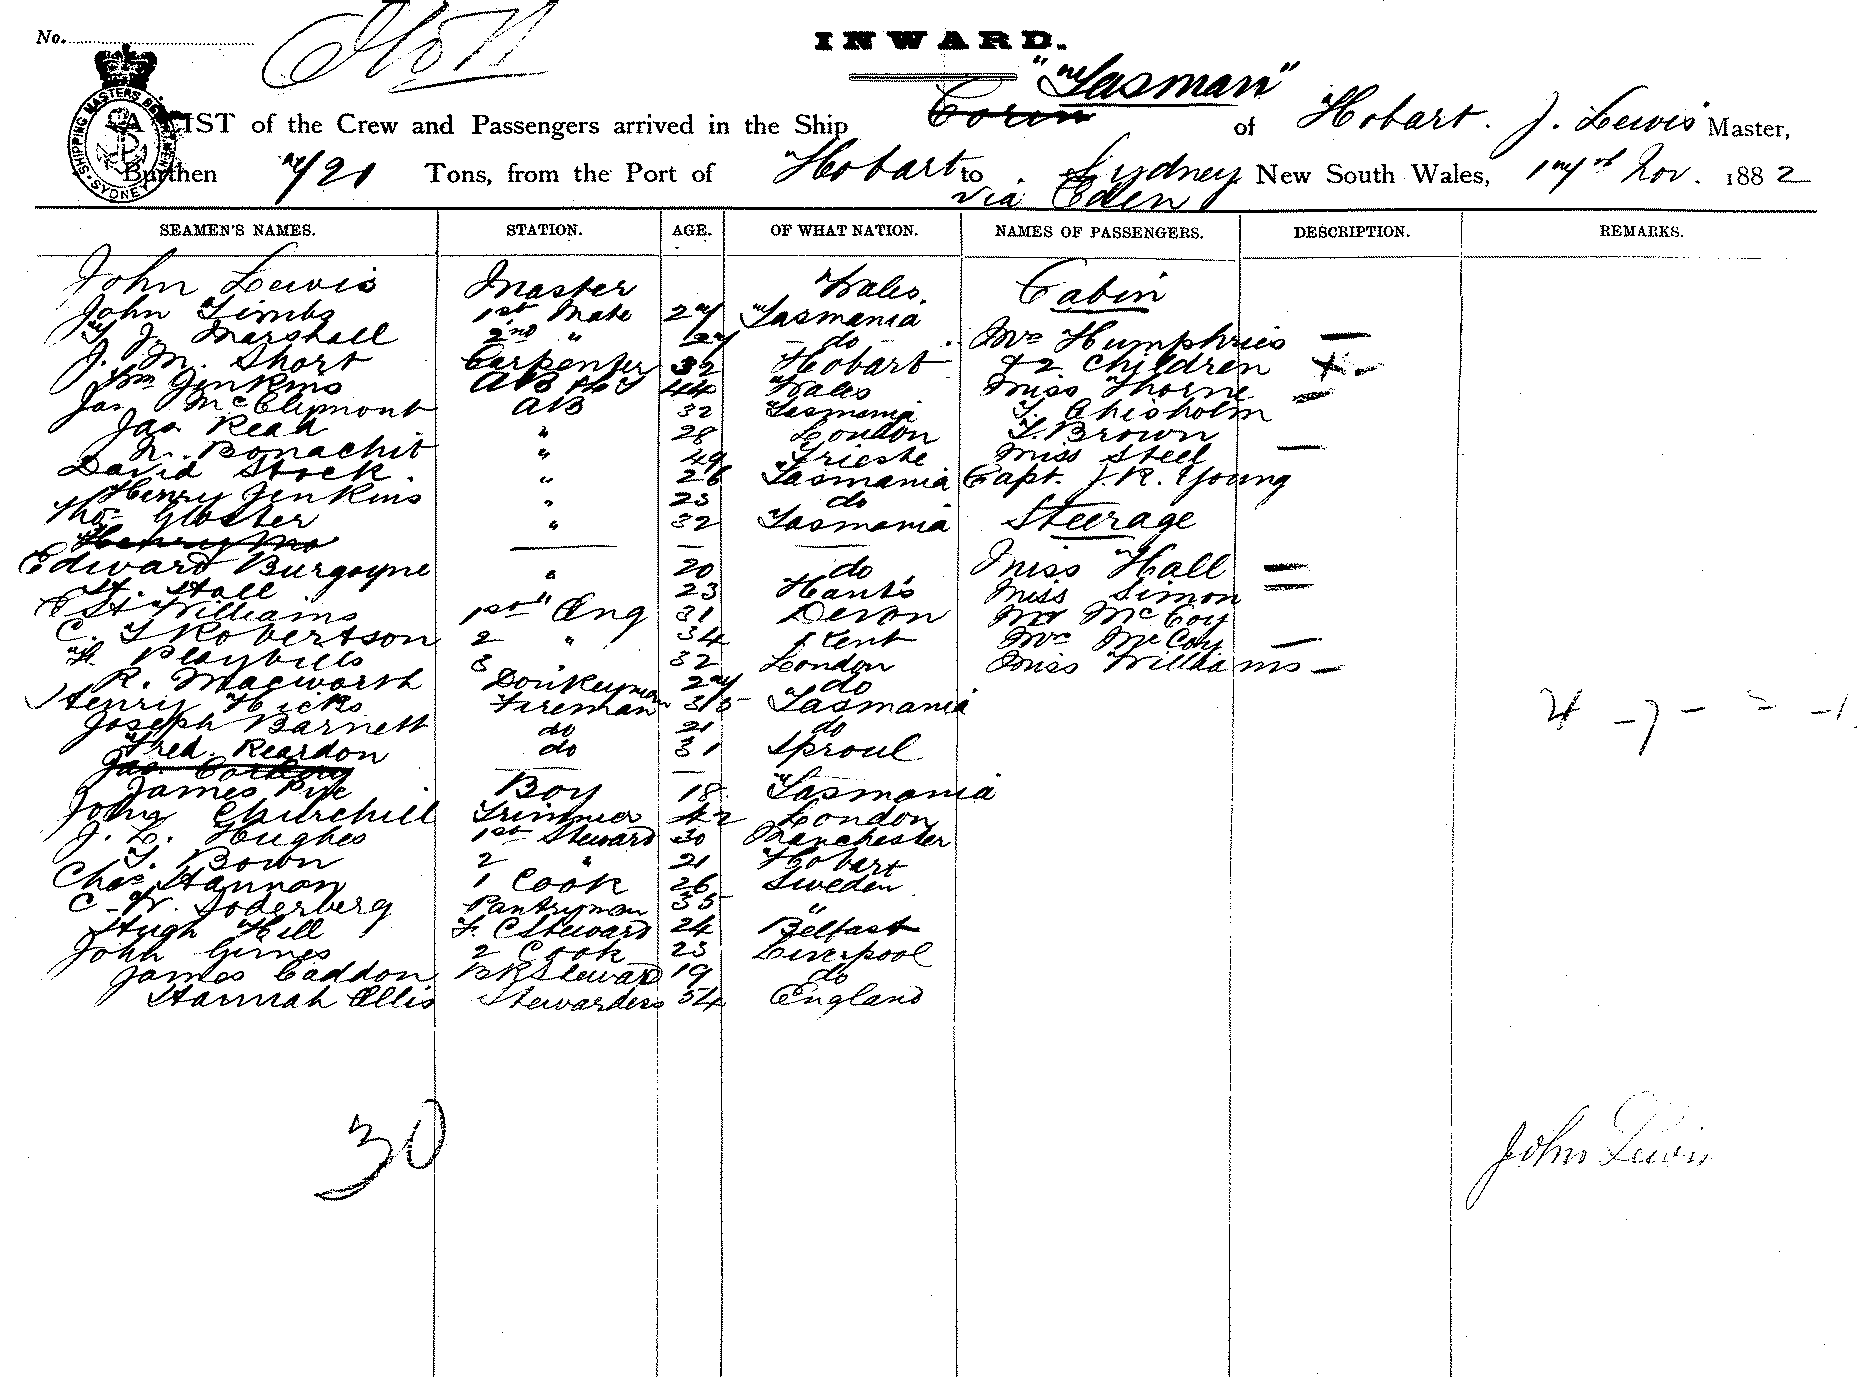 No.
INWARD.
"Tasman"
A LIST of the Crew and Passengers arrived in the Ship Corin of Hobart. J. Lewis Master,
Burthen 720 Tons, from the Port of Hobart to Sydney New South Wales, 17th Nov. 1882
via Eden
SHIPPING MASTERS SYDNEY
SEAMEN'S NAMES. STATION. AGE. OF WHAT NATION. NAMES OF PASSENGERS. DESCRIPTION. REMARKS.
John Lewis Master Wales. Cabin
John Timbs 1st Mate 27 Tasmania
Marshall 2nd " 27 do Mrs Humphries
J. M. Short Carpenter 32 Hobart & 2 Children
Wm Jenkins AB 44 Wales Miss Thorne
Jas McClymont AB 32 Tasmania T. Chisholm
Jas Reah " 28 London T. Brown
Bonachit " 49 Trieste Miss Steel
David Stock. " 26 Tasmania Capt. J. R. Young
Henry Jenkins " 23 do
Thos Gloster " 32 Tasmania Steerage
Henry
Edward Burgoyne " 20 do Miss Hall
H. Hall " 23 Hants Miss Simon
Williams 1st Eng 31 Devon Mr McCoy
C. T Robertson 2 " 34 Kent Mrs McCoy
H. Playbills 3 32 London Miss Williams
R. Macworth Donkeyman 27 do
Henry Hicks Fireman 35 Tasmania
Joseph Barnett do 21 do
Fred. Reardon do 31 Sproul
Jas.
James Pye Boy 18 Tasmania
John Churchill Trimmer 42 London
J. L. Hughes 1st Steward 30 Manchester
T. Bown 2 " 21 Hobart
Chas Hannon 1 Cook 26 Sweden
C. W. Soderberg Pantryman 35 "
Hugh Hill F. C Steward 24 Belfast
John Gimes 2 Cook 23 Liverpool
James Caddon BK Steward 19 do
Hannah Ellis Stewardess 54 England
30
John Lewis